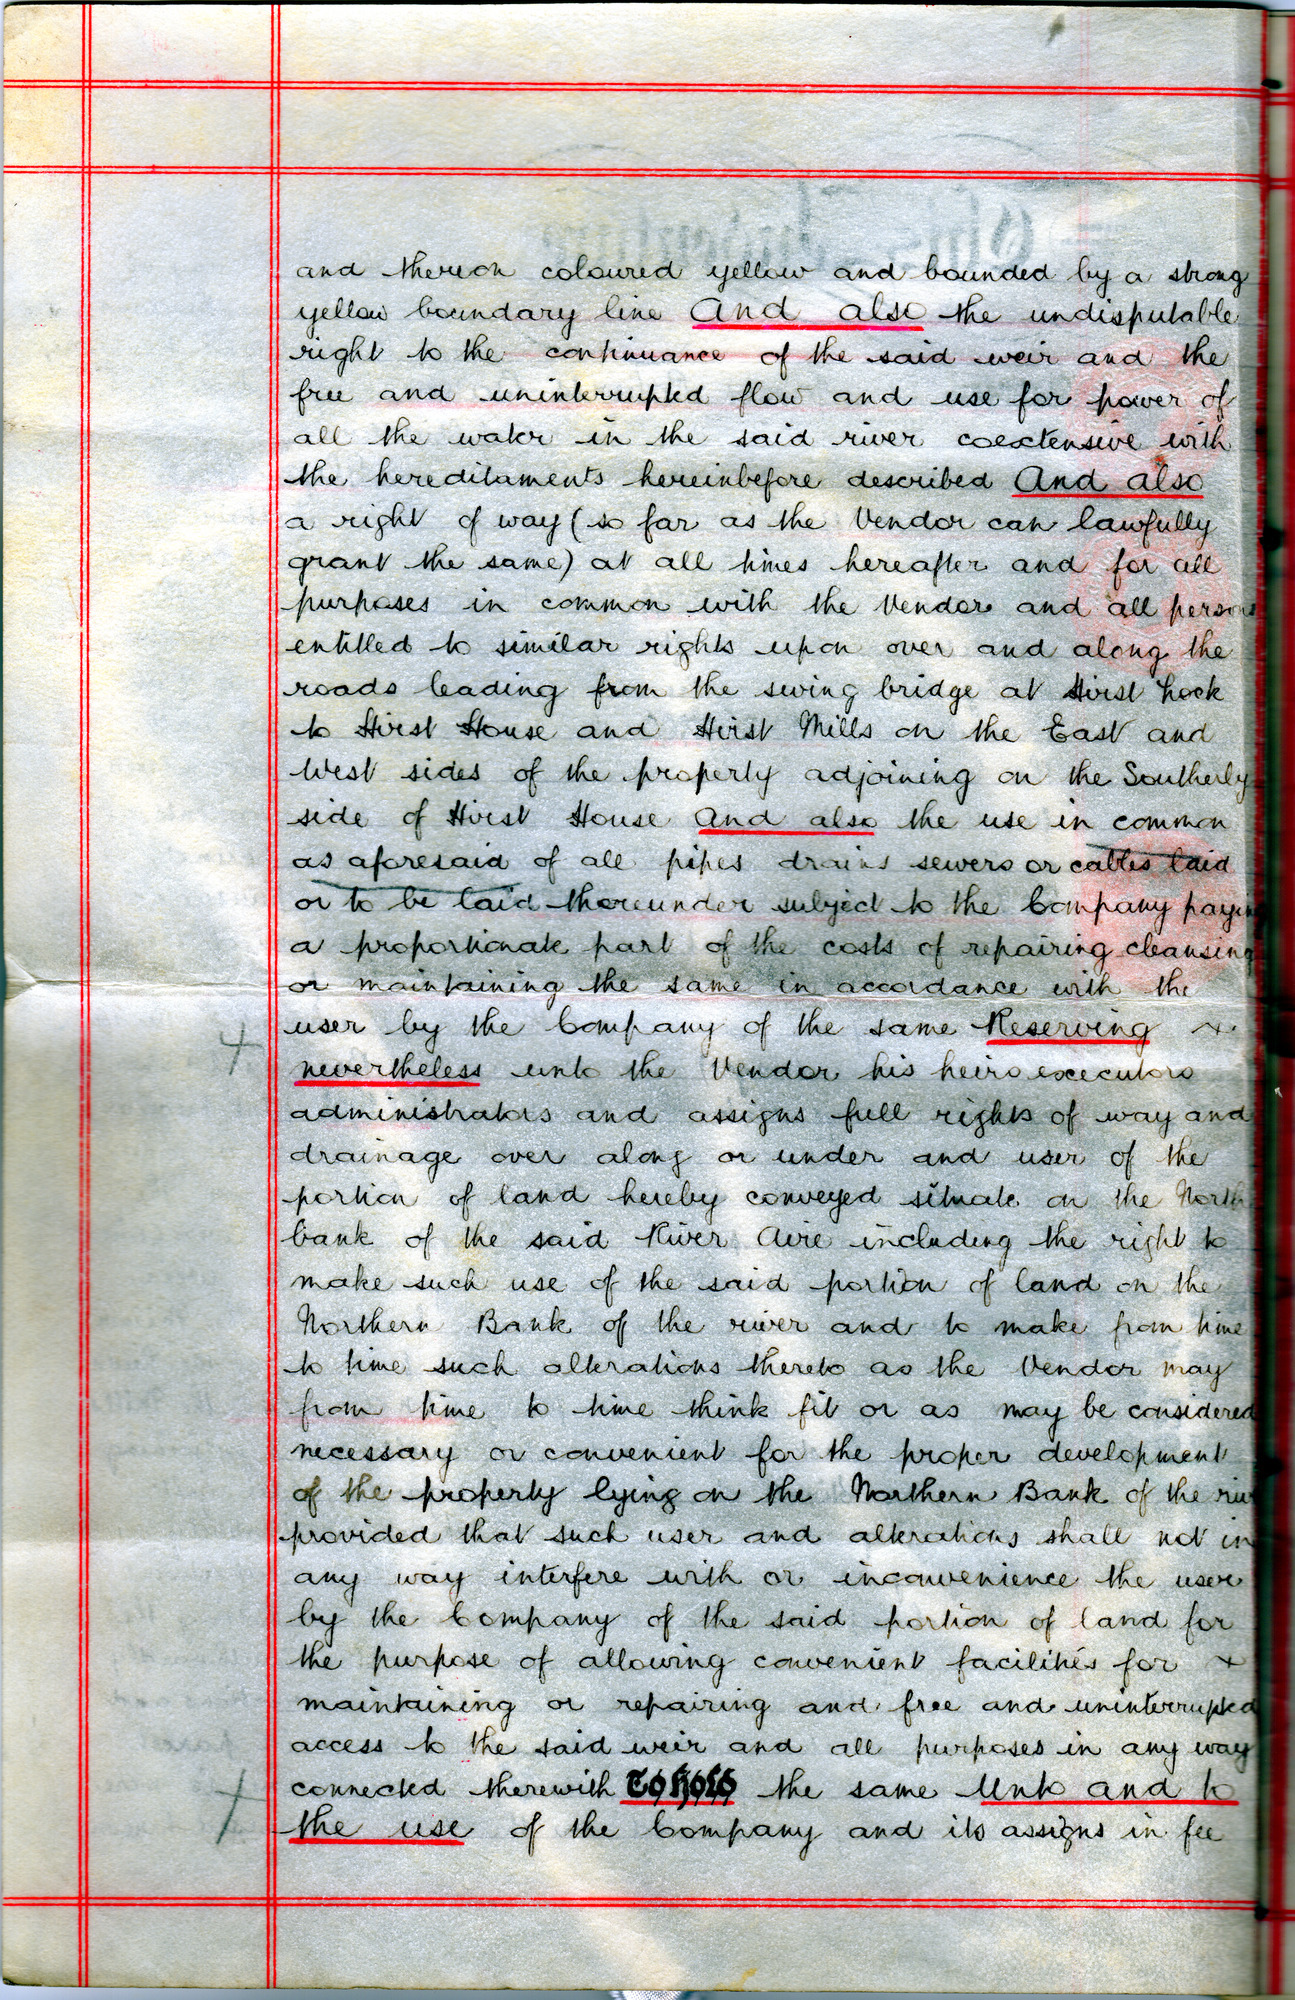 and thereon coloured yellow and bounded by a strong
yellow boundary line And also the undisputable
right to the continuance of the said weir and the
free and uninterrupted flow and use for power of
all the water in the said river coextensive with
the hereditaments hereinbefore described And also
a right of way (so far as the Vendor can lawfully
grant the same) at all times hereafter and for all
purposes in common with the Vendor and all persons
entitled to similar rights upon over and along the
roads leading from the swing bridge at Hirst Lock
to Hirst House and Hirst Mills on the East and
West sides of the property adjoining on the Southerly
side of Hirst House And also the use in common
as aforesaid of all pipes drains sewers or cables laid
or to be laid thereunder subject to the Company paying
a proportionate part of the costs of repairing cleansing
or maintaining the same in accordance with the
user by the Company of the same Reserving
nevertheless unto the Vendor his heirs executors
administrators and assigns full rights of way and
drainage over along or under and user of the
portion of land hereby conveyed situate on the North
bank of the said River Aire including the right to
make such use of the said portion of land on the
Northern Bank of the river and to make from time
to time such alterations thereto as the Vendor may
from time to time think fit or as may be considered
necessary or convenient for the proper development
of the property lying on the Northern Bank of the riv
provided that such user and alterations shall not in
any way interfere with or inconvenience the user
by the Company of the said portion of land for
the purpose of allowing convenient facilities for
maintaining or repairing and free and uninterrupted
access to the said weir and all purposes in any way
connected therewith To hold the same Unto and to
the use of the Company and its assigns in fee